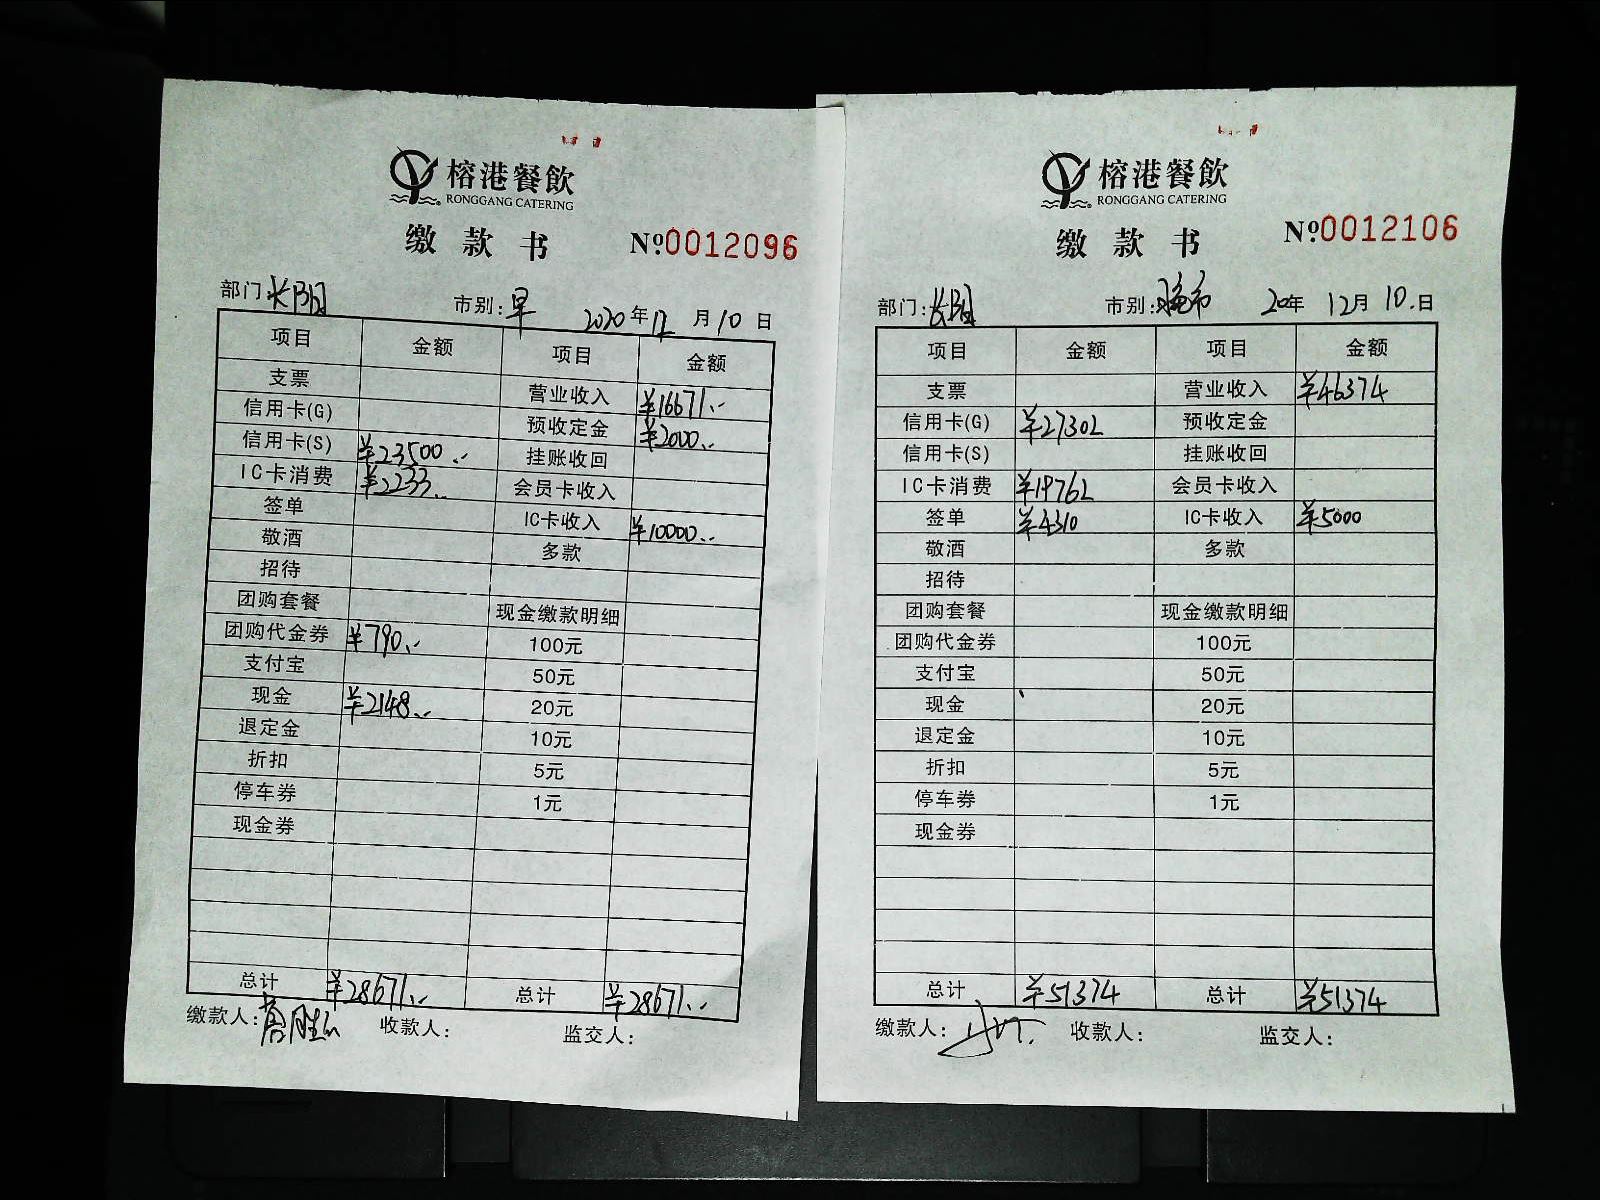 榕港餐飲
RONGGANG CATERING
缴款书 №0012096
部门: 市别:早 2020年12月10日
项目 金额 项目 金额
支票 营业收入 ¥16671.--
信用卡(G) 预收定金 ¥2000.--
信用卡(S) ¥23500.-- 挂账收回
IC卡消费 ¥2233.-- 会员卡收入
签单 IC卡收入 ¥10000.--
敬酒 多款
招待
团购套餐 现金缴款明细
团购代金券 ¥790.-- 100元
支付宝 50元
现金 ¥2148.-- 20元
退定金 10元
折扣 5元
停车券 1元
现金券
总计 ¥28671.-- 总计 ¥28671.--
缴款人: 收款人: 监交人:
榕港餐飲
RONGGANG CATERING
缴款书 №0012106
部门: 市别:晚市 20年12月10日
项目 金额 项目 金额
支票 营业收入 ¥46374
信用卡(G) ¥27302 预收定金
信用卡(S) 挂账收回
IC卡消费 ¥19762 会员卡收入
签单 ¥4310 IC卡收入 ¥5000
敬酒 多款
招待
团购套餐 现金缴款明细
团购代金券 100元
支付宝 50元
现金 20元
退定金 10元
折扣 5元
停车券 1元
现金券
总计 ¥51374 总计 ¥51374
缴款人: 收款人: 监交人: